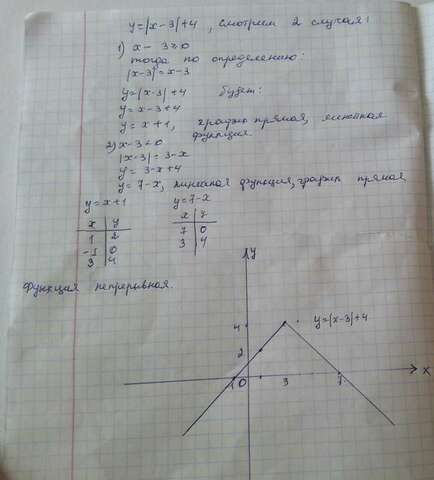 y=|x-3|+4, смотрим 2 случая!
1) x-3≥0
тогда по определению:
|x-3|=x-3
y=|x-3|+4 будет:
y=x-3+4
y=x+1, график прямая, линейная
функция
2) x-3<0
|x-3|=3-x
y=3-x+4
y=7-x, линейная функция, график прямая
y=x+1 y=7-x
x y x y
1 2 7 0
-1 0 3 4
3 4
Функция непрерывная.
y
4 y=|x-3|+4
2
-1 0 3 7 x